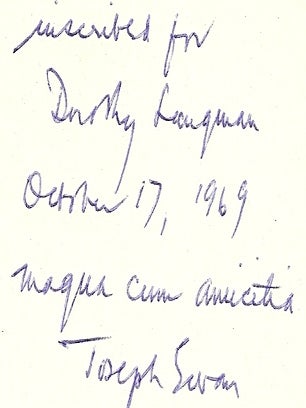 inscribed for
Dorothy Langman
October 17, 1969
magna cum amicitia
Joseph Ewan